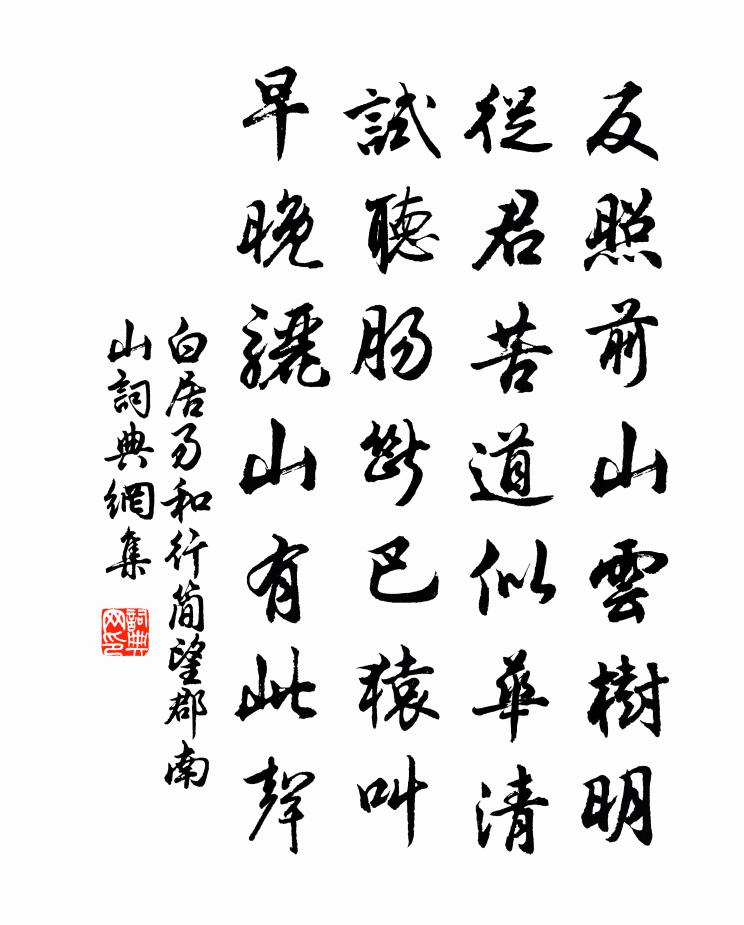 反照前山雲樹明
從君苦道似華清
試聽腸斷巴猿叫
早晚驪山有此聲
白居易和行简望郡南
山詞典網集
詞典網印